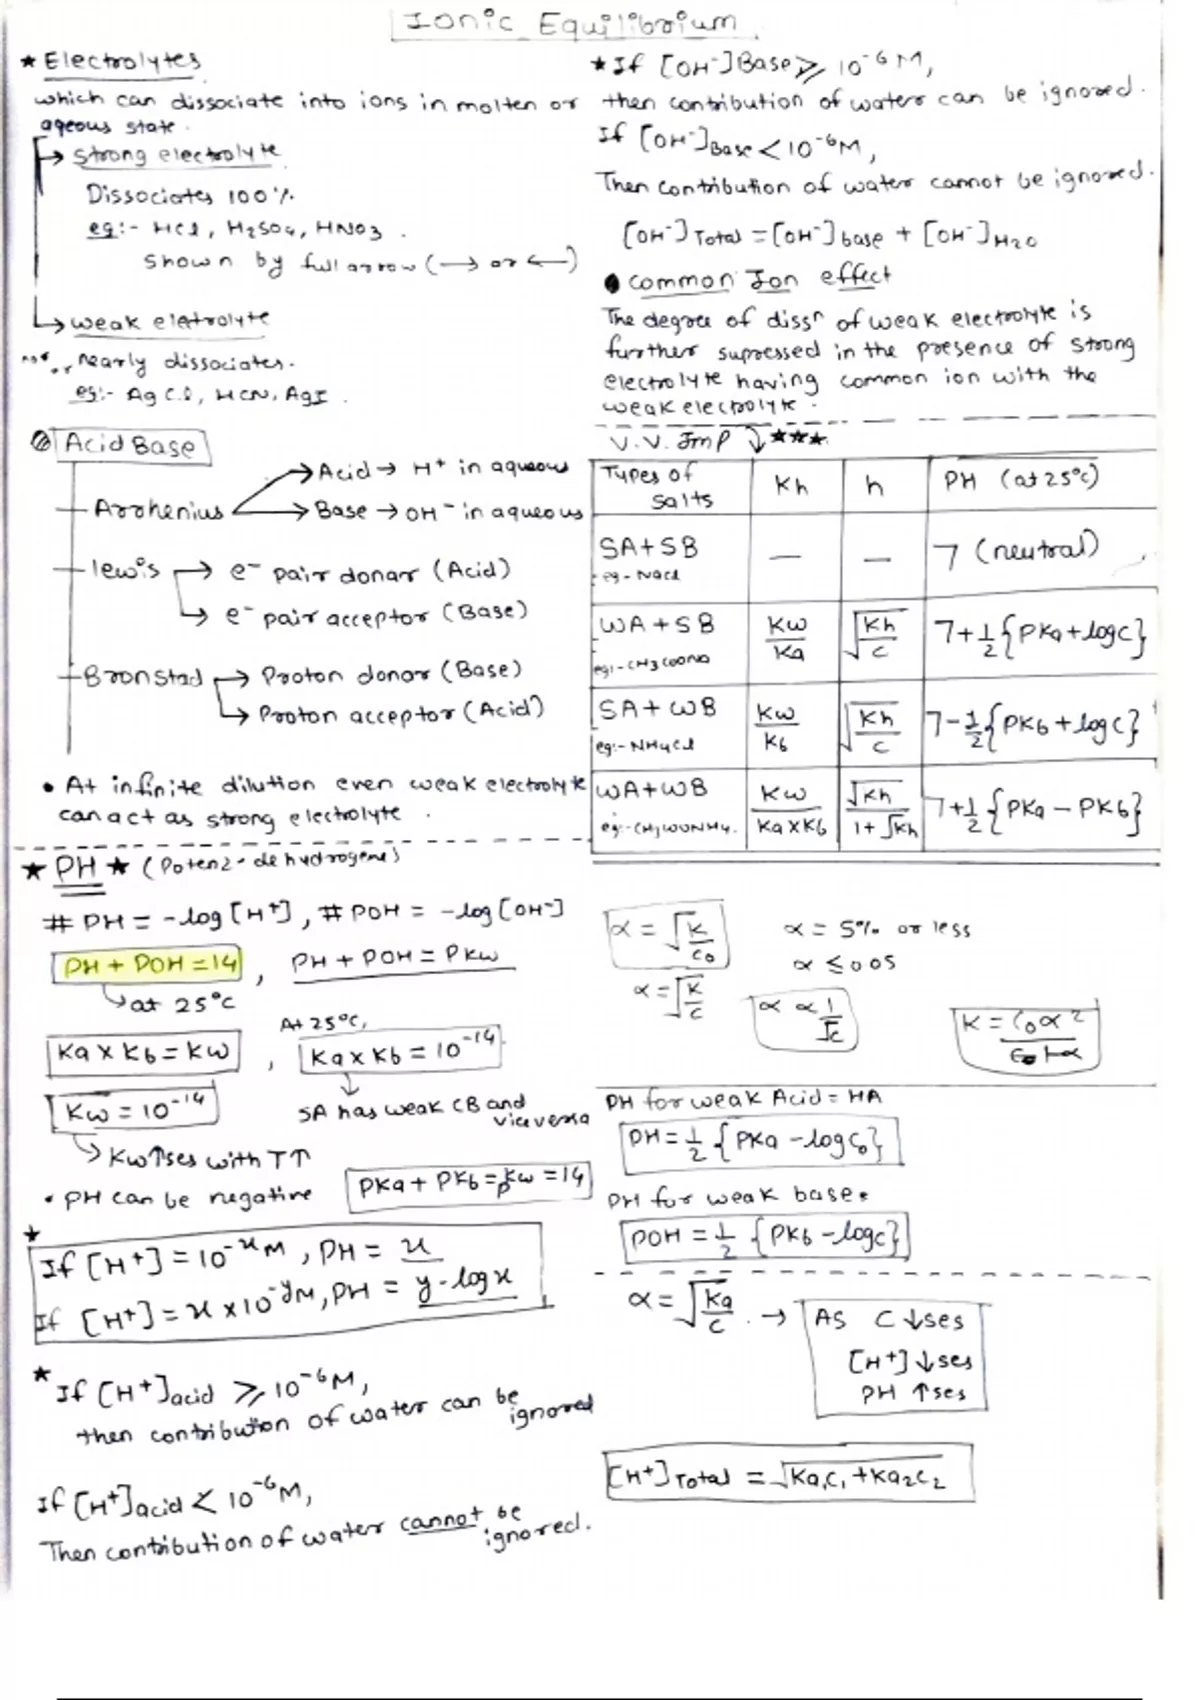 Ionic Equilibrium
★ Electrolytes
which can dissociate into ions in molten or
aqeous state.
→ Strong electrolyte
Dissociates 100%
eg:- HCl, H2SO4, HNO3.
shown by full arrow (→ or ←)
↳ weak eletrolyte
nearly dissociates.
eg:- AgCl, HCN, AgI.
Acid Base
Arrhenius → Acid → H+ in aqueous
→ Base → OH- in aqueous
lewis → e- pair donar (Acid)
↳ e- pair acceptor (Base)
Bronstad → Proton donor (Base)
↳ Proton acceptor (Acid)
• At infinite dilution even weak electrolyte
can act as strong electrolyte.
★ PH ★ (Potenz-de hydrogene)
# PH = -log[H+], # POH = -log[OH-]
PH + POH = 14, PH + POH = PKw
↳ at 25°C
At 25°C,
Ka x Kb = Kw, Ka x Kb = 10^-14
Kw = 10^-14
SA has weak CB and
viceversa
↳ Kw↑ses with T↑
• PH can be negative
PKa + PKb = PKw = 14
★
If [H+] = 10^-x M, PH = x
If [H+] = x x 10^-y M, PH = y - log x
★ If [H+]acid ⩾ 10^-6 M,
then contribution of water can be
ignored
If [H+]acid < 10^-6 M,
Then contribution of water cannot be
ignored.
★ If [OH-]Base ⩾ 10^-6 M,
then contribution of water can be ignored.
If [OH-]Base < 10^-6 M,
Then contribution of water cannot be ignored.
[OH-]Total = [OH-]base + [OH-]H2O
● common Ion effect
The degree of diss^n of weak electrolyte is
further supressed in the presence of strong
electrolyte having common ion with the
weak electrolyte.
V.V. Imp ↓ ★★★
Types of Salts | Kh | h | PH (at 25°C)
SA + SB | — | — | 7 (neutral)
eg - NaCl
WA + SB | Kw/Ka | √(Kh/c) | 7 + 1/2 {PKa + log c}
eg:- CH3COONa
SA + WB | Kw/Kb | √(Kh/c) | 7 - 1/2 {PKb + log c}
eg:- NH4Cl
WA + WB | Kw/(Ka x Kb) | √Kh/(1 + √Kh) | 7 + 1/2 {PKa - PKb}
eg:- CH3COONH4.
α = √(K/C0) α = 5% or less
α ≤ 0.05
α = √(K/C) α ∝ 1/√C K = C0α²/
PH for weak Acid = HA
PH = 1/2 {PKa - log C0}
PH for weak base.
POH = 1/2 {PKb - log c}
α = √(Ka/C) → AS C ↓ses
[H+] ↓ses
PH ↑ses
[H+]Total = √(Ka1C1 + Ka2C2)